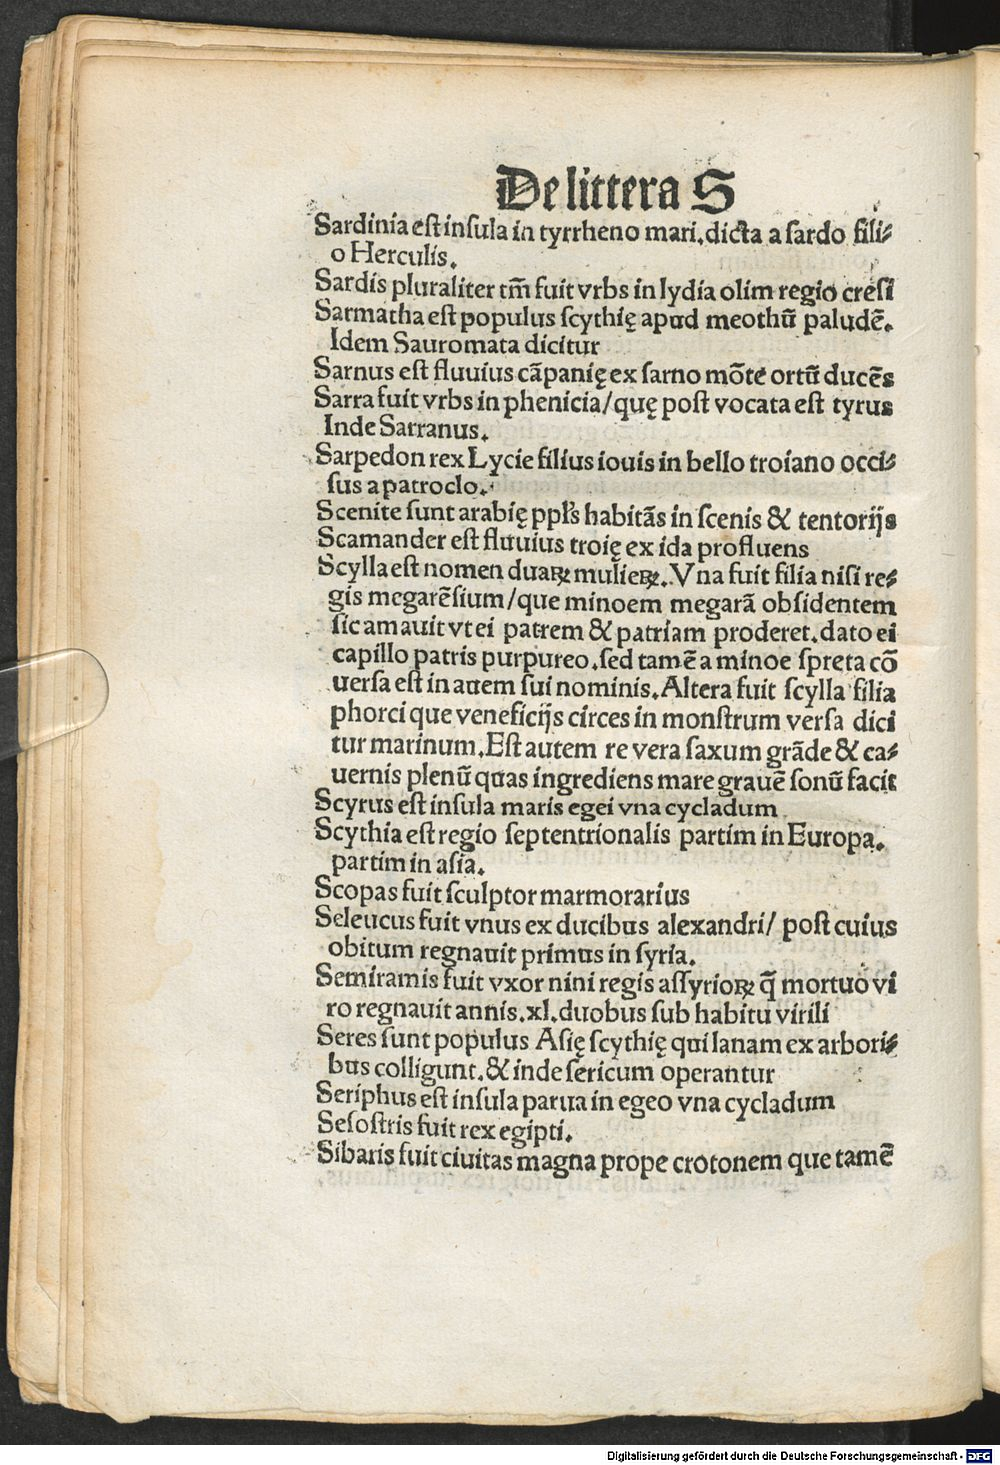 De littera S
Sardinia est insula in tyrrheno mari. dicta a sardo fili⸗
o Herculis.
Sardis pluraliter tm̄ fuit vrbs in lydia olim regio cresi
Sarmatha est populus scythię apud meothū paludē.
Idem Sauromata dicitur
Sarnus est fluuius cāpanię ex sarno mōte ortū ducēs
Sarra fuit vrbs in phenicia/quę post vocata est tyrus
Inde Sarranus.
Sarpedon rex Lycie filius iouis in bello troiano occi⸗
sus a patroclo.
Scenite sunt arabię ppl's habitās in scenis & tentorijs
Scamander est fluuius troię ex ida profluens
Scylla est nomen duaꝝ mulieꝝ. Vna fuit filia nisi re⸗
gis megarēsium/que minoem megarā obsidentem
sic amauit vt ei patrem & patriam proderet. dato ei
capillo patris purpureo. sed tamē a minoe spreta cō
uersa est in auem sui nominis. Altera fuit scylla filia
phorci que veneficijs circes in monstrum versa dici
tur marinum. Est autem re vera saxum grāde & ca⸗
uernis plenū quas ingrediens mare grauē sonū facit
Scyrus est insula maris egei vna cycladum
Scythia est regio septentrionalis partim in Europa.
partim in asia.
Scopas fuit sculptor marmorarius
Seleucus fuit vnus ex ducibus alexandri/ post cuius
obitum regnauit primus in syria.
Semiramis fuit vxor nini regis assyrioꝝ q̄ mortuo vi
ro regnauit annis. xl. duobus sub habitu virili
Seres sunt populus Asię scythię qui lanam ex arbori⸗
bus colligunt. & inde sericum operantur
Seriphus est insula parua in egeo vna cycladum
Sesostris fuit rex egipti.
Sibaris fuit ciuitas magna prope crotonem que tamē
Digitalisierung gefördert durch die Deutsche Forschungsgemeinschaft - DFG